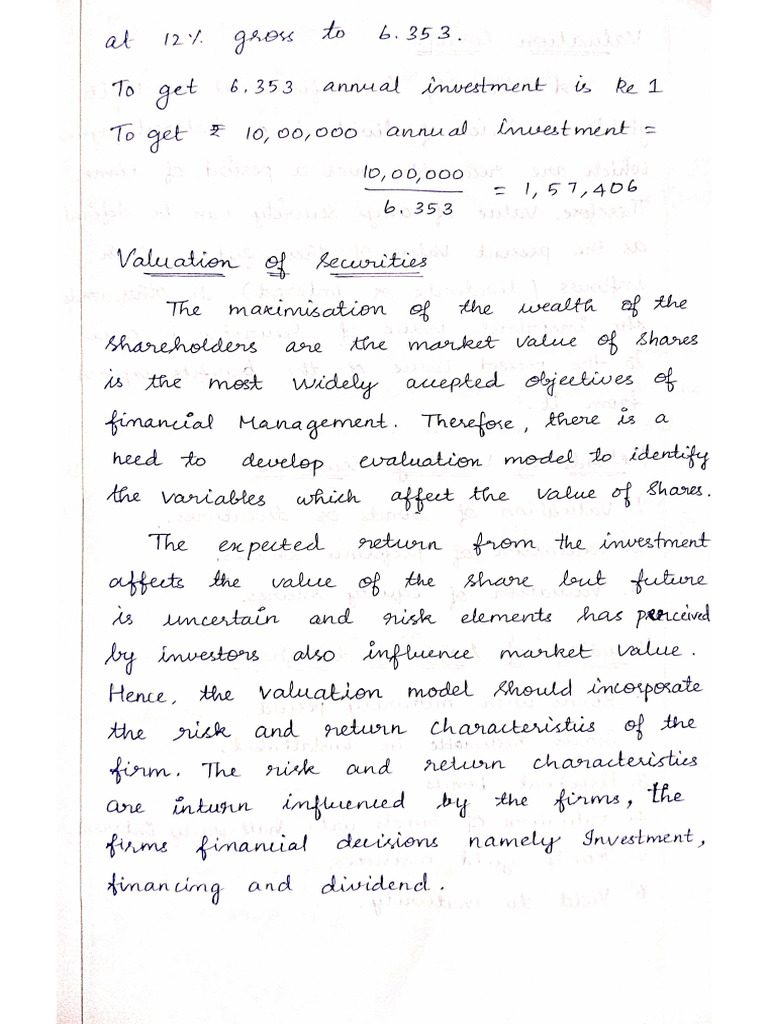 at 12% gross to 6.353.
To get 6.353 annual investment is Re 1
To get ₹ 10,00,000 annual investment =
10,00,000
6.353
= 1,57,406
Valuation of Securities
The maximisation of the wealth of the
shareholders are the market value of shares
is the most widely accepted objectives of
financial Management. Therefore, there is a
need to develop evaluation model to identify
the variables which affect the value of shares.
The expected return from the investment
affects the value of the share but future
is uncertain and risk elements has perceived
by investors also influence market value.
Hence, the valuation model should incorporate
the risk and return characteristics of the
firm. The risk and return characteristics
are inturn influenced by the firms, the
firms financial decisions namely Investment,
financing and dividend.